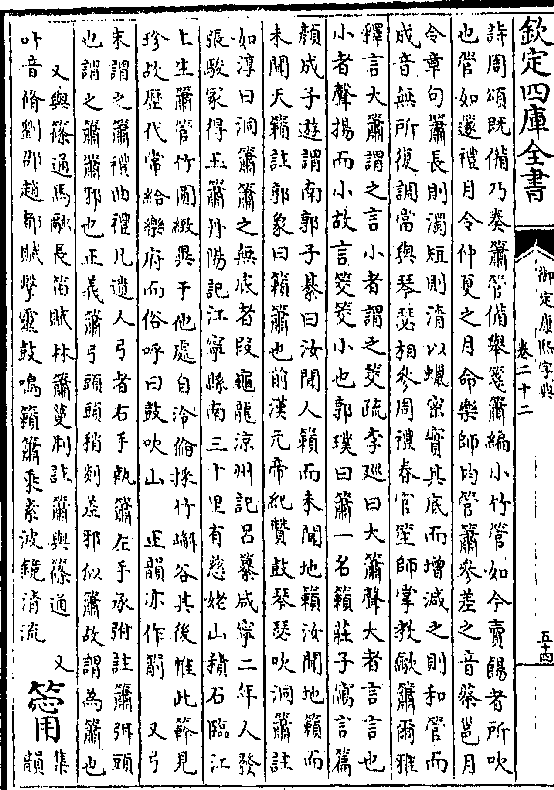 欽定四庫全書
御定康熙字典
卷二十二
五十四
詩周頌既備乃奏簫管備舉箋簫編小竹管如今賣餳者所吹
也管如篴禮月令仲夏之月命樂師均管簫參差之音蔡邕月
令章句簫長則濁短則清以蠟宻實其底而增減之則和管而
成音無所復調當與琴瑟相參周禮春官笙師掌教龡簫爾雅
釋言大簫謂之言小者謂之筊疏李巡曰大簫聲大者言言也
小者聲揚而小故言筊筊小也郭璞曰簫一名籟莊子寓言篇
顏成子遊謂南郭子綦曰汝聞人籟而未聞地籟汝聞地籟而
未聞天籟註郭象曰籟簫也前漢元帝紀贊鼓琴瑟吹洞簫註
如淳曰洞簫簫之無底者段龜龍涼州記吕纂咸寧二年人發
張駿冢得玉簫丹陽記江寧縣南三十里有慈姥山積石臨江
上生簫管竹圓緻異于他處自泠倫採竹嶰谷其後惟此簳見
珍故歴代常給樂府而俗呼曰鼓吹山 正韻亦作箾 又弓
末謂之簫禮曲禮凡遺人弓者右手執簫左手承弣註簫弭頭
也謂之簫簫邪也正義簫弓頭頭稍剡差邪似簫故謂為簫也
又與篠通馬融長笛賦林簫蔓荆註簫與篠通 又
叶音脩劉邵趙都賦擊靈鼓鳴籟簫乘素波鏡清流
集韻